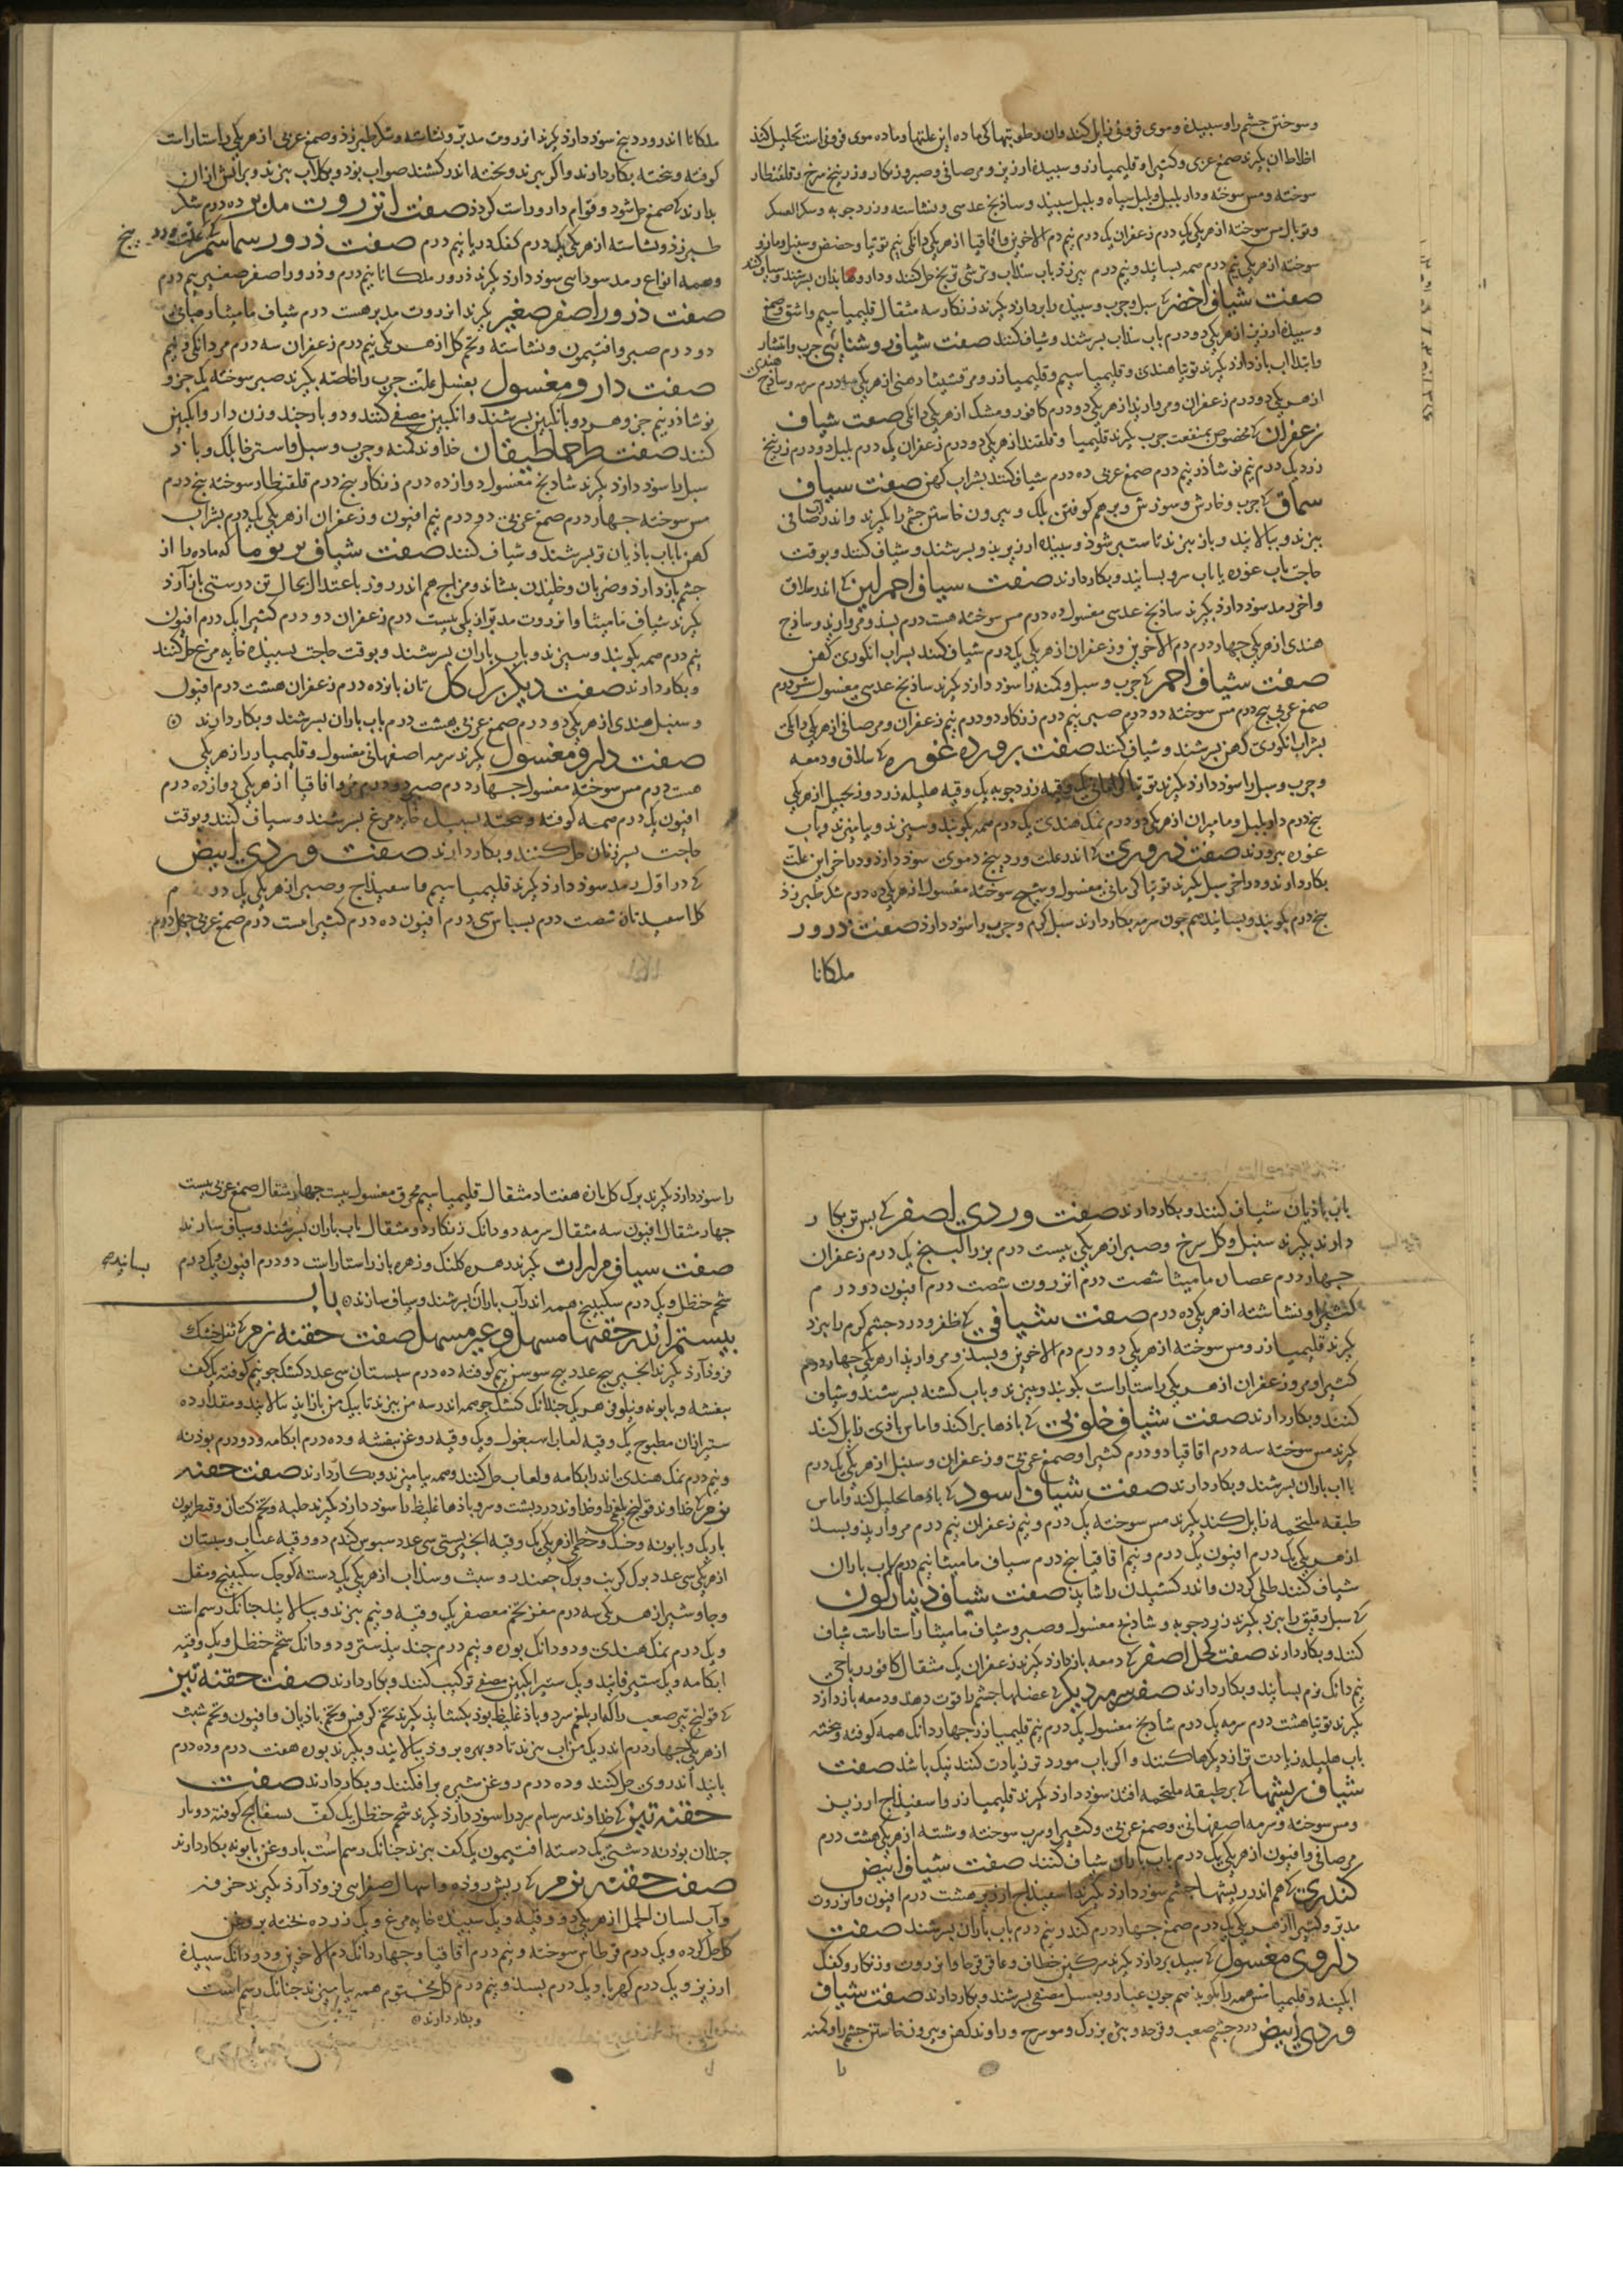 وسوختن چشم را و سبیده وموی فزونی زایل کند وان رطوبتها کی ماده این علتها وماده موی فزونی است تحلیل کند
اخلاط ان بکیرند صمغ عربی وکتیرا و قلیمیا زر و سبیده ارزیز و مر صافی و صبر و زنکار و زرنیخ سرخ و قلقطار
سوخته و مس سوخته و دار بلبل و بلبل سیاه و بلبل سبید و ساذنج عدسی و نشاسته و زردجوبه و سکر العسکر
و توبال مس سوخته ازهر یکی یک درم زعفران یک درم نیم دم الاخوین و اقاقیا ازهر یکی دانکی نیم توتیا و حضض و سنبل و مازو
سوخته ازهر یکی نیم درم همه بسایند و نیم درم بیرزد باب سذاب و ترشی ترنج حل کنند و داروها بذان بسرشند و شیاف کنند
صفت شیاف اخضر کی سبل و جرب و سبیده را ببرد بکیرند زنکار سه مثقال قلیمیا سیم و اشق و صمغ
و سبیده ارزیز ازهر یکی دو درم باب سذاب بسرشند و شیاف کنند صفت شیاف روشنائی جرب و انتشار
و ابتدا اب بازدارذ بکیرند توتیا هندی و قلیمیا سیم و قلیمیا زر و مرقشیشا ذهبی ازهر یکی ده درم سرمه و ساذج هندی
ازهر یکی دو درم زعفران و مروارید ازهر یکی دو درم کافور و مشک ازهر یکی دانکی صفت شیاف
زعفران کی مخصوص بمنفعت جرب بکیرند قلیمیا و قلقند ازهر یکی دو درم زعفران یک درم بلبل دو درم زرنیخ
زرد یک درم نیم نوشاذر نیم درم صمغ عربی ده درم شیاف کنند بشراب کهن صفت شیاف
سماق کی جرب و خارش و سوزش و برهم کوفتن بلک و بیرون خاستن چشم را بکیرند و اندر آب صافی
ببزند و ببالایند و باز ببزند تا ستبر شوذ و سبیده ارزیز بذو بسرشند و شیاف کنند و بوقت
حاجت باب غوره یا باب سرد بسایند و بکار دارند صفت شیاف احمر لین کی اندر سلاق
و اخر رمد سوذ دارذ بکیرند ساذنج عدسی مغسول ده درم مس سوخته هشت درم بسذ و مروارید و ساذج
هندی ازهر یکی چهار درم دم الاخوین و زعفران ازهر یکی یک درم شیاف کنند بشراب انکوری کهن
صفت شیاف احمر کی جرب و سبل و کمنه را سوذ دارذ بکیرند ساذنج عدسی مغسول شش درم
صمغ عربی بنج درم مس سوخته دو درم صبر نیم درم زنکار دو درم نیم زعفران و مر صافی ازهر یکی دانکی
بشراب انکوری کهن بسرشند و شیاف کنند صفت بروده غوره کی سلاق و دمعه
و جرب و سبل را سوذ دارذ بکیرند توتیا کرمانی یک وقیه زردجوبه یک وقیه هلیله زرد و زنجبیل ازهر یکی
بنج درم دار بلبل و مامیران ازهر یکی دو درم نمک هندی یک درم همه بکوبند و ببیزند و بیامیزند و باب
غوره ببرورند صفت ذروری کی اندر علت وردینج دموی سوذ دارذ و در اخر این علت
بکار دارند و در اخر سبل بکیرند توتیا کرمانی مغسول و شیح سوخته مغسول ازهر یکی ده درم شکر طبرزذ
بنج درم بکوبند و بسایند هم جون سرمه بکار دارند سبل کرم و جرب را سوذ دارذ صفت ذرور
ملکانا
ملکانا اندر وردینج سوذ دارذ بکیرند انزروت مدبر و نشاسته و شکر طبرزذ و صمغ عربی ازهر یکی راستاراست
کوفته و بخته بکار دارند و اکر ببزند و بخته اندر کشند صواب بوذ و بکلاب ببزند و براتش ازان
بدارند کی صمغ حل شود و قوام دارو راست کردذ صفت انزروت مدبر ده درم شکر
طبرزذ و نشاسته ازهر یکی یک درم کفک دریا نیم درم صفت ذرور سماسم کی علت وردینج
و همه انواع رمد سوداسی سوذ دارذ بکیرند ذرور ملکانا نیم درم و ذرور اصفر صغیر نیم درم
صفت ذرور اصفر صغیر بکیرند انزروت مدبر هشت درم شیاف مامیثا رهبانی
دو درم صبر و افتیمون و نشاسته و تخم کل ازهر یکی نیم درم زعفران سه درم مر دانکی و نیم
صفت دارو مغسول بعسل علت جرب را خاصه بکیرند صبر سوخته یک جزو
نوشاذر نیم جزو هر دو بانکبین بسرشند و انکبین مصفی کنند و دو بار جند وزن دارو انکبین
کنند صفت طراحماطیقان خداوند کمنه و جرب و سبل و استرخا بلک و باذ
سبل را سوذ دارذ بکیرند شاذنج مغسول دوازده درم زنکار بنج درم قلقطار سوخته بنج درم
مس سوخته جهار درم صمغ عربی دو درم نیم افیون و زعفران ازهر یکی یک درم بشراب
کهن یا باب باذیان تر بسرشند و شیاف کنند صفت شیاف بریوما که ماده را از
جشم بازدارذ و ضربان و خلیدن بنشاند و مزاج هم اندر روز باعتدال بحال تن درستی بازآرذ
بکیرند شیاف مامیثا و انزروت مدبر ازهر یکی بیست درم زعفران دو درم کثیرا یک درم افیون
نیم درم همه بکوبند و ببیزند و باب باران بسرشند و بوقت حاجت بسبیده خایه مرغ حل کنند
و بکار دارند صفت دیکر برک کل تازه بانزده درم زعفران هشت درم افیون
و سنبل هندی ازهر یکی دو درم صمغ عربی هشت درم باب باران بسرشند و بکار دارند
صفت دارو مغسول بکیرند سرمه اصفهانی مغسول و قلیمیا زر ازهر یکی
هشت درم مس سوخته مغسول جهار درم صبر دو درم مر و اقاقیا ازهر یکی دوازده درم
افیون یک درم همه کوفته و بخته بسبیده خایه مرغ بسرشند و شیاف کنند و بوقت
حاجت بشیر زنان حل کنند و بکار دارند صفت وردی ابیض
کی در اول رمد سوذ دارذ بکیرند قلیمیا سیم و اسفیذاج و صبر ازهر یکی یک درم
کل اسبید تازه شصت درم بسباس سی درم افیون ده درم کثیرا بیست درم صمغ عربی جهل درم
باب باذیان شیاف کنند و بکار دارند صفت وردی اصفر کی بس تر بکار
دارند بکیرند سنبل و کل سرخ و صبر ازهر یکی بیست درم بزر البنج یک درم زعفران
جهار درم عصاره مامیثا شصت درم انزروت شصت درم افیون دو درم
کثیرا و نشاسته ازهر یکی ده درم صفت شیافی کی ظفره و درد جشم کرم را ببرد
بکیرند قلیمیا زر و مس سوخته ازهر یکی دو درم دم الاخوین و بسذ و مروارید ازهر یکی جهار درم
کثیرا و مر و زعفران ازهر یکی راستاراست بکوبند و ببیزند و باب کشنه بسرشند و شیاف
کنند و بکار دارند صفت شیاف خلوقی کی باذها براکند و اماس باذی زایل کند
بکیرند مس سوخته سه درم اقاقیا دو درم کثیرا و صمغ عربی و زعفران و سنبل ازهر یکی یک درم
بااب باران بسرشند و بکار دارند صفت شیاف اسود کی باذها تحلیل کند و اماس
طبقه ملتحمه زایل کند بکیرند مس سوخته یک درم و نیم زعفران نیم درم مروارید و بسذ
ازهر یکی یک درم افیون یک درم و نیم اقاقیا بنج درم شیاف مامیثا نیم درم باب باران
شیاف کنند طلی کردن و اندر کشیدن را شاید صفت شیاف دینارکون
کی سبل رقیق را ببرد بکیرند زردجوبه و شاذنج مغسول و صبر و شیاف مامیثا راستاراست شیاف
کنند و بکار دارند صفت کحل اصفر کی دمعه بازدارذ بکیرند زعفران یک مثقال کافور رباحی
نیم دانک نرم بسایند و بکار دارند صفت سرمه دیکر کی عضلها جشم را قوت دهذ و دمعه بازدارذ
بکیرند توتیا هشت درم سرمه یک درم شاذنج مغسول یک درم نیم قلیمیا زر جهار دانک همه کوفته و بخته
باب هلیله زیادت تر از دیکرها کنند و اکر باب مورد تر زیادت کنند نیک باشد صفت
شیاف ریشها کی بر طبقه ملتحمه افتد سوذ دارذ بکیرند قلیمیا زر و اسفیذاج ارزیز
و مس سوخته و سرمه اصفهانی و صمغ عربی و کثیرا و سرب سوخته و شسته ازهر یکی هشت درم
مر صافی و افیون ازهر یکی یک درم باب باران شیاف کنند صفت شیاف ابیض
کندری کی هم اندر ریشها جشم سوذ دارذ بکیرند اسفیذاج ارزیز هشت درم افیون و انزروت
مدبر و کثیرا ازهر یکی یک درم صمغ جهار درم کندر نیم درم باب باران بسرشند صفت
داروی مغسول کی سبیده ببرد بکیرند سرکین خطاف و عاقرقرحا و انزروت و زنکار و کفک
ابکینه و قلیمیا مس همه را بکوبند هم جون غبار و بعسل مصفی بسرشند و بکار دارند صفت شیاف
وردی ابیض درد جشم صعب و قرحه و بثره بزرک و مورسرج و راوند کهن و بیرون خاستن جشم را و کمنه
را سوذ دارذ بکیرند برک کل تازه هفتاد مثقال قلیمیا سیم محرق مغسول بیست جهار مثقال صمغ عربی بیست
جهار مثقال افیون سه مثقال سرمه دو دانک زنکار دو مثقال باب باران بسرشند و شیاف سازند
صفت شیاف مرارات بکیرند زهره کلنک و زهره باز راستاراست دو درم افیون یک درم
شحم حنظل و یک درم سکبینج همه اندر آب باران بسرشند و شیاف سازند باب
بیستم اندر حقنها مسهل و غیر مسهل صفت حقنه نرم کی ثفل خشک
فروذ آرذ بکیرند انجیر بنج عدد بیخ سوسن نیم کوفته ده درم سبستان سی عدد کشک جو نیم کوفته یک کف
بنفشه و بابونه و نیلوفر هر یک جندانک کشک جو همه اندر سه من اب ببزند تا بیک من بازاید ببالایند و مقدار ده
ستیر ازان مطبوخ یک وقیه لعاب اسبغول و یک وقیه روغن بنفشه و ده درم ابکامه و دو درم بوذنه
و نیم درم نمک هندی اندر ابکامه و لعاب حل کنند و همه بیامیزند و بکار دارند صفت حقنه
نرم کی خداوند قولنج بلغمی را و خداوند درد بشت و سرو باذها غلیظ را سوذ دارذ بکیرند حلبه و تخم کتان و قنطوریون
باریک و بابونه و خسک و خطمی ازهر یکی یک وقیه انجیر بستی سی عدد سبوس کندم دو وقیه عناب و سبستان
ازهر یکی سی عدد برک کرنب و برک جغندر و شبت و سذاب ازهر یکی یک دسته کوجک سکبینج و مقل
و جاوشیر ازهر یکی سه درم مغز تخم معصفر یک وقیه و نیم ببزند و ببالایند جنانک رسم است
و یک درم نمک هندی و دو دانک بوره و نیم درم جند بیذستر و دو دانک شحم حنظل و یک وقیه
ابکامه و یک ستیر فانید و یک ستیر انکبین مصفی ترکیب کنند و بکار دارند صفت حقنه تیز
کی قولنج تیز صعب را که از بلغم سرد و باذ غلیظ بوذ بکشاید بکیرند تخم کرفس و تخم باذیان و افیون و تخم شبت
ازهر یکی جهار درم اندر یک من اب ببزند تا دو بهره بروذ ببالایند و بکیرند بوره هفت درم و ده درم
بانید اندر وی حل کنند و ده درم روغن شیره برافکنند و بکار دارند صفت
حقنه تیز کی خداوند سرسام سرد را سوذ دارذ بکیرند شحم حنظل یک کف بسفایج کوفته دو بار
جندان بوذنه دشتی یک دسته افتیمون یک کف ببزند جنانک رسم است با روغن بابونه بکار دارند
صفت حقنه نرم کی ریش روذه و اسهال صفراسی فروذ آرذ بکیرند خرفه
و آب لسان الحمل ازهر یکی دو وقیه و یک سبیده خایه مرغ و یک زرده بخته بروغن
کل حل کرده و یک درم قرطاس سوخته و نیم درم اقاقیا و جهار دانک دم الاخوین و دو دانک سبیده
ارزیز و یک درم کهربا و یک درم بسذ و نیم درم کل مختوم همه بیامیزند جنانک رسم است
و بکار دارند